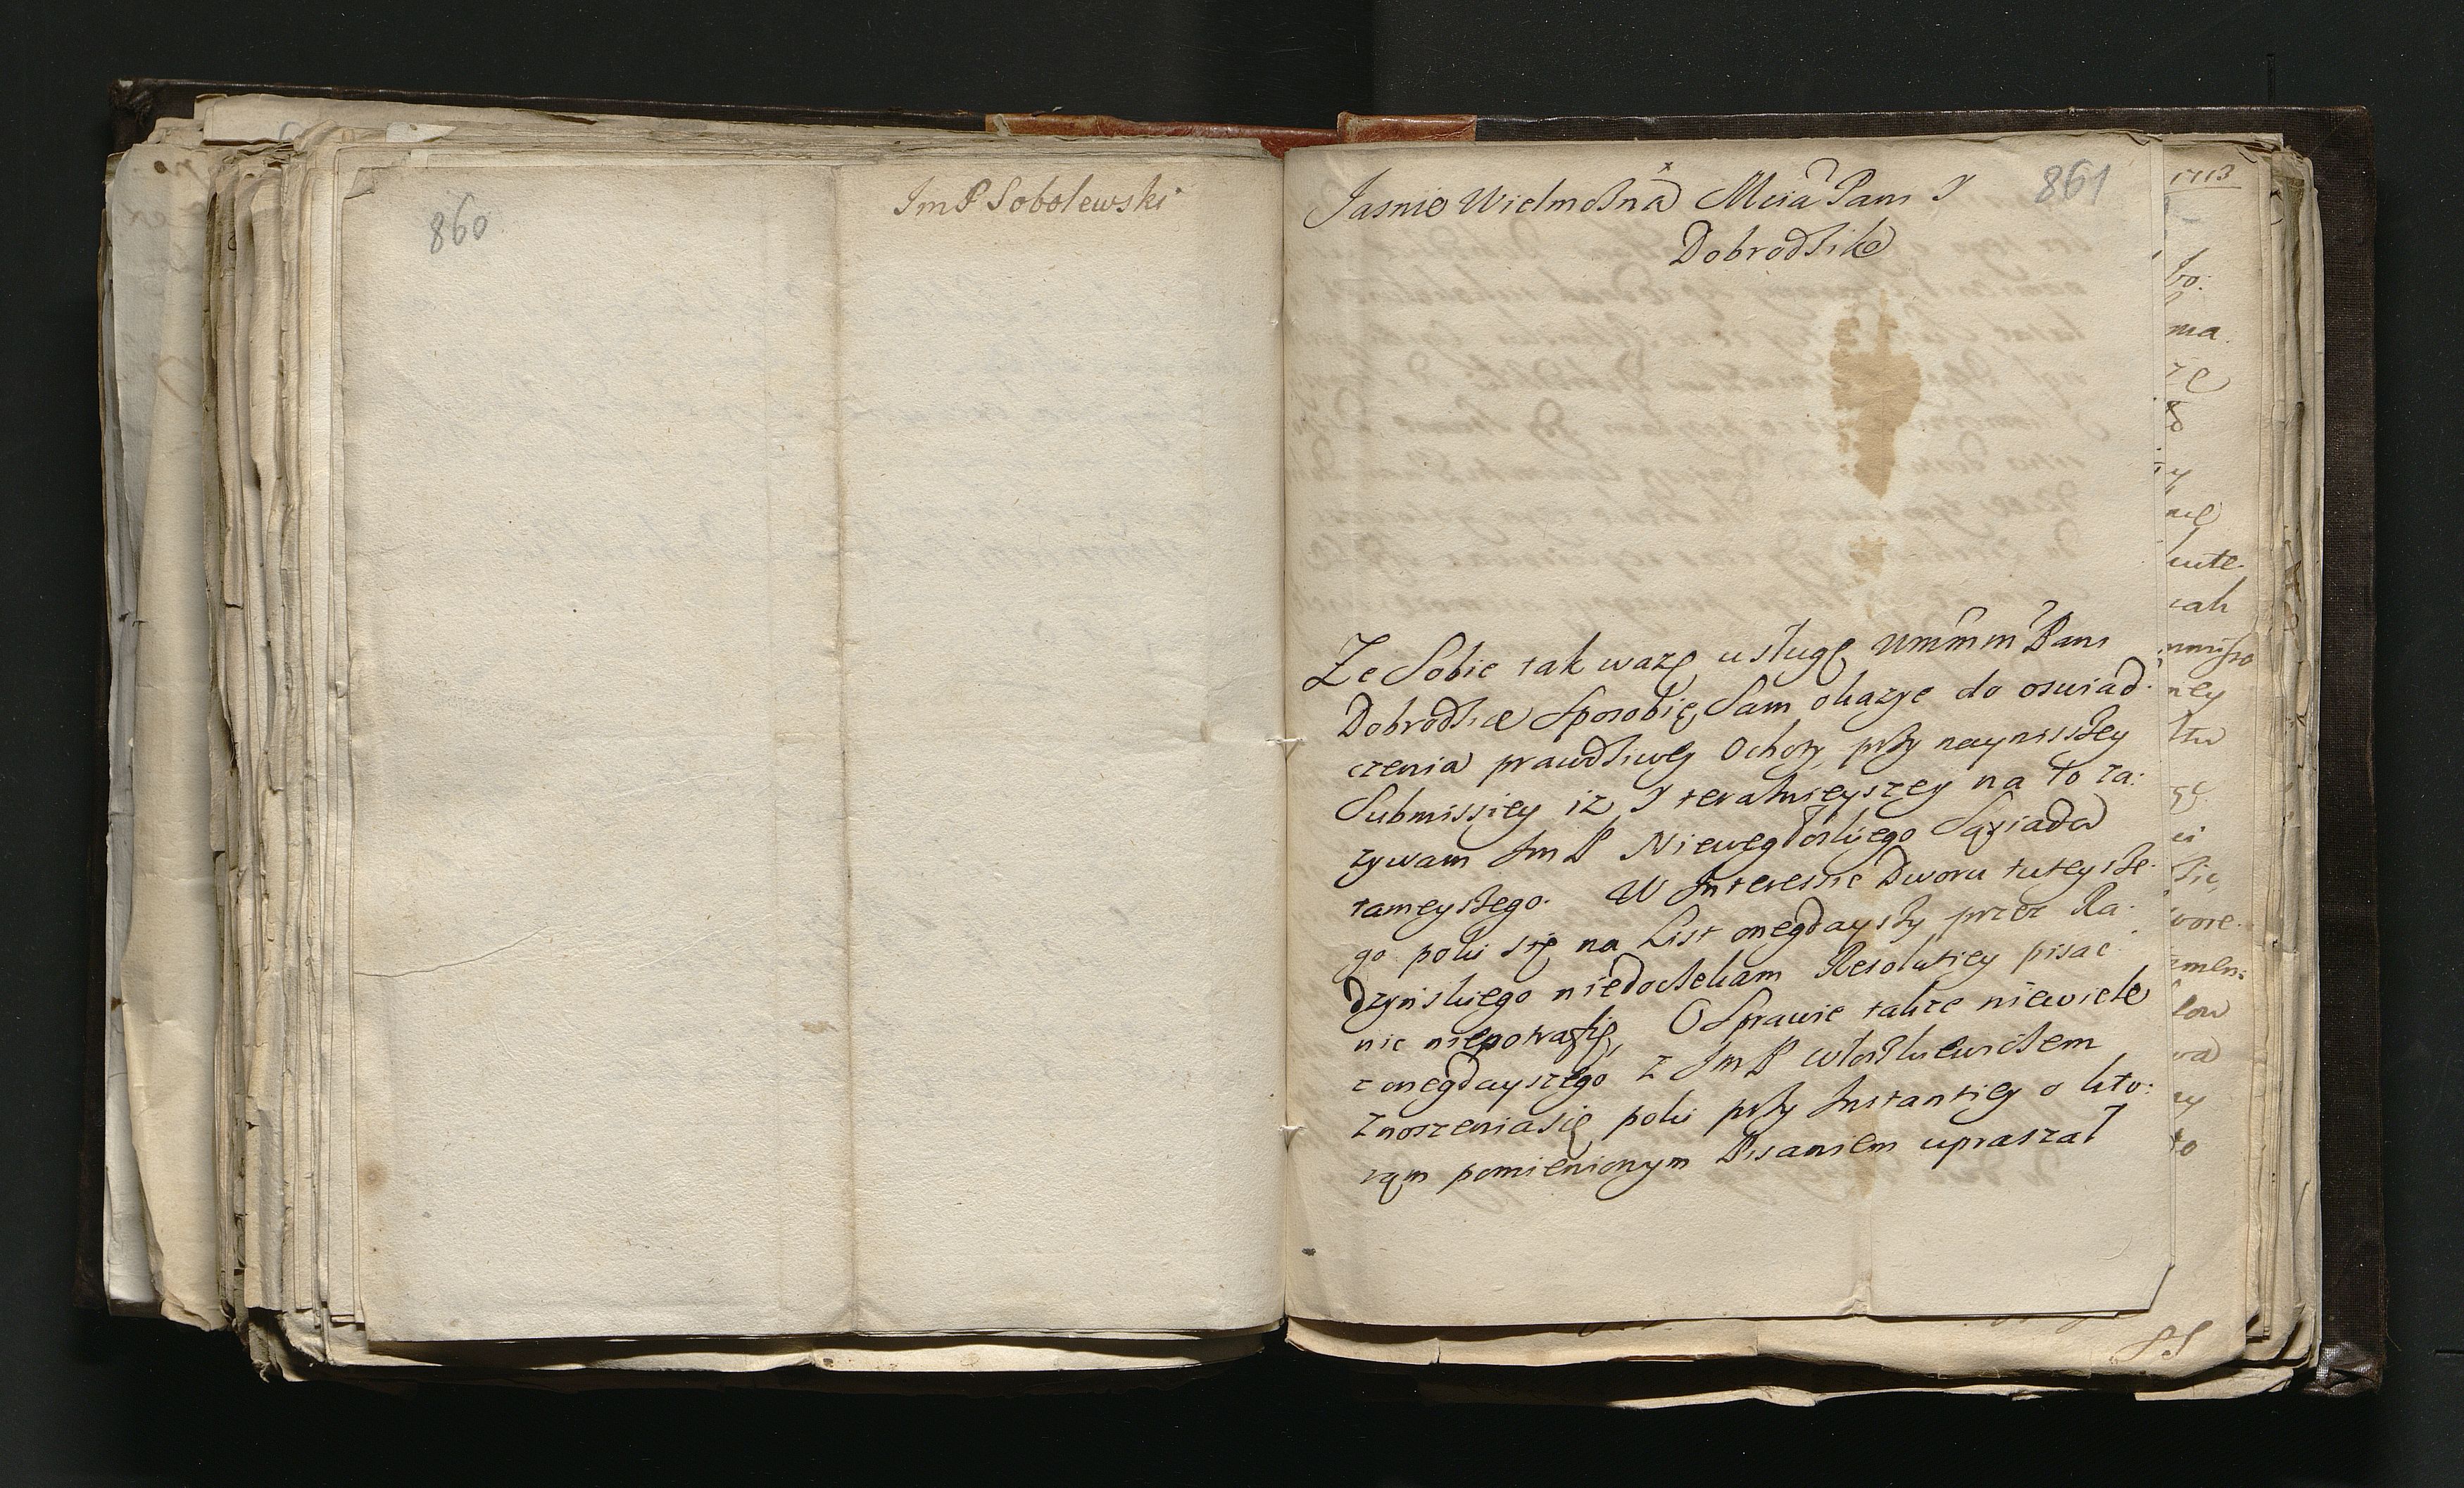 860
ImP Sobolewski
861
Jasnie Wielmożna Mcia Pani I
Dobrodziko
Ze Sobie tak ważę usługę Wmmm Pani
Dobrodzice sposobię, Sam okazye do oswiad-
czenia prawdziwey Ochoty przy nayniższey
Submissiey iż I teraznieyszey na to za:
zywam ImP Niewęgłoskiego Sąsiada
tameyszego. W Interessie Dworu tuteysze-
go poki się na List onegdayszy przez Ra-
dzynskiego niedoczekam Resolutiey pisac
nic niepotrafię, O Sprawie takze niewiele
z onegdayszego z ImP
Znoszenia się, poki przy Instantiey o kto:
rąm pomienionym Pisaniem upraszał
1713
bo:
ma
cute.
cah
ney
wore.
low
wa
to